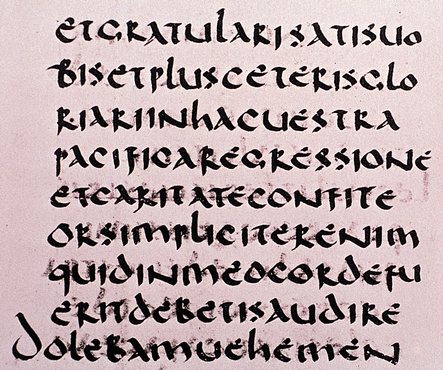 etgratularisatisuo
bisetplusceterisglo
riariinhacuestra
pacificaregressione
etcaritateconfite
orsimpliciterenim
quidinmeocordefu
eritdebetisaudire
dolebamuehemen